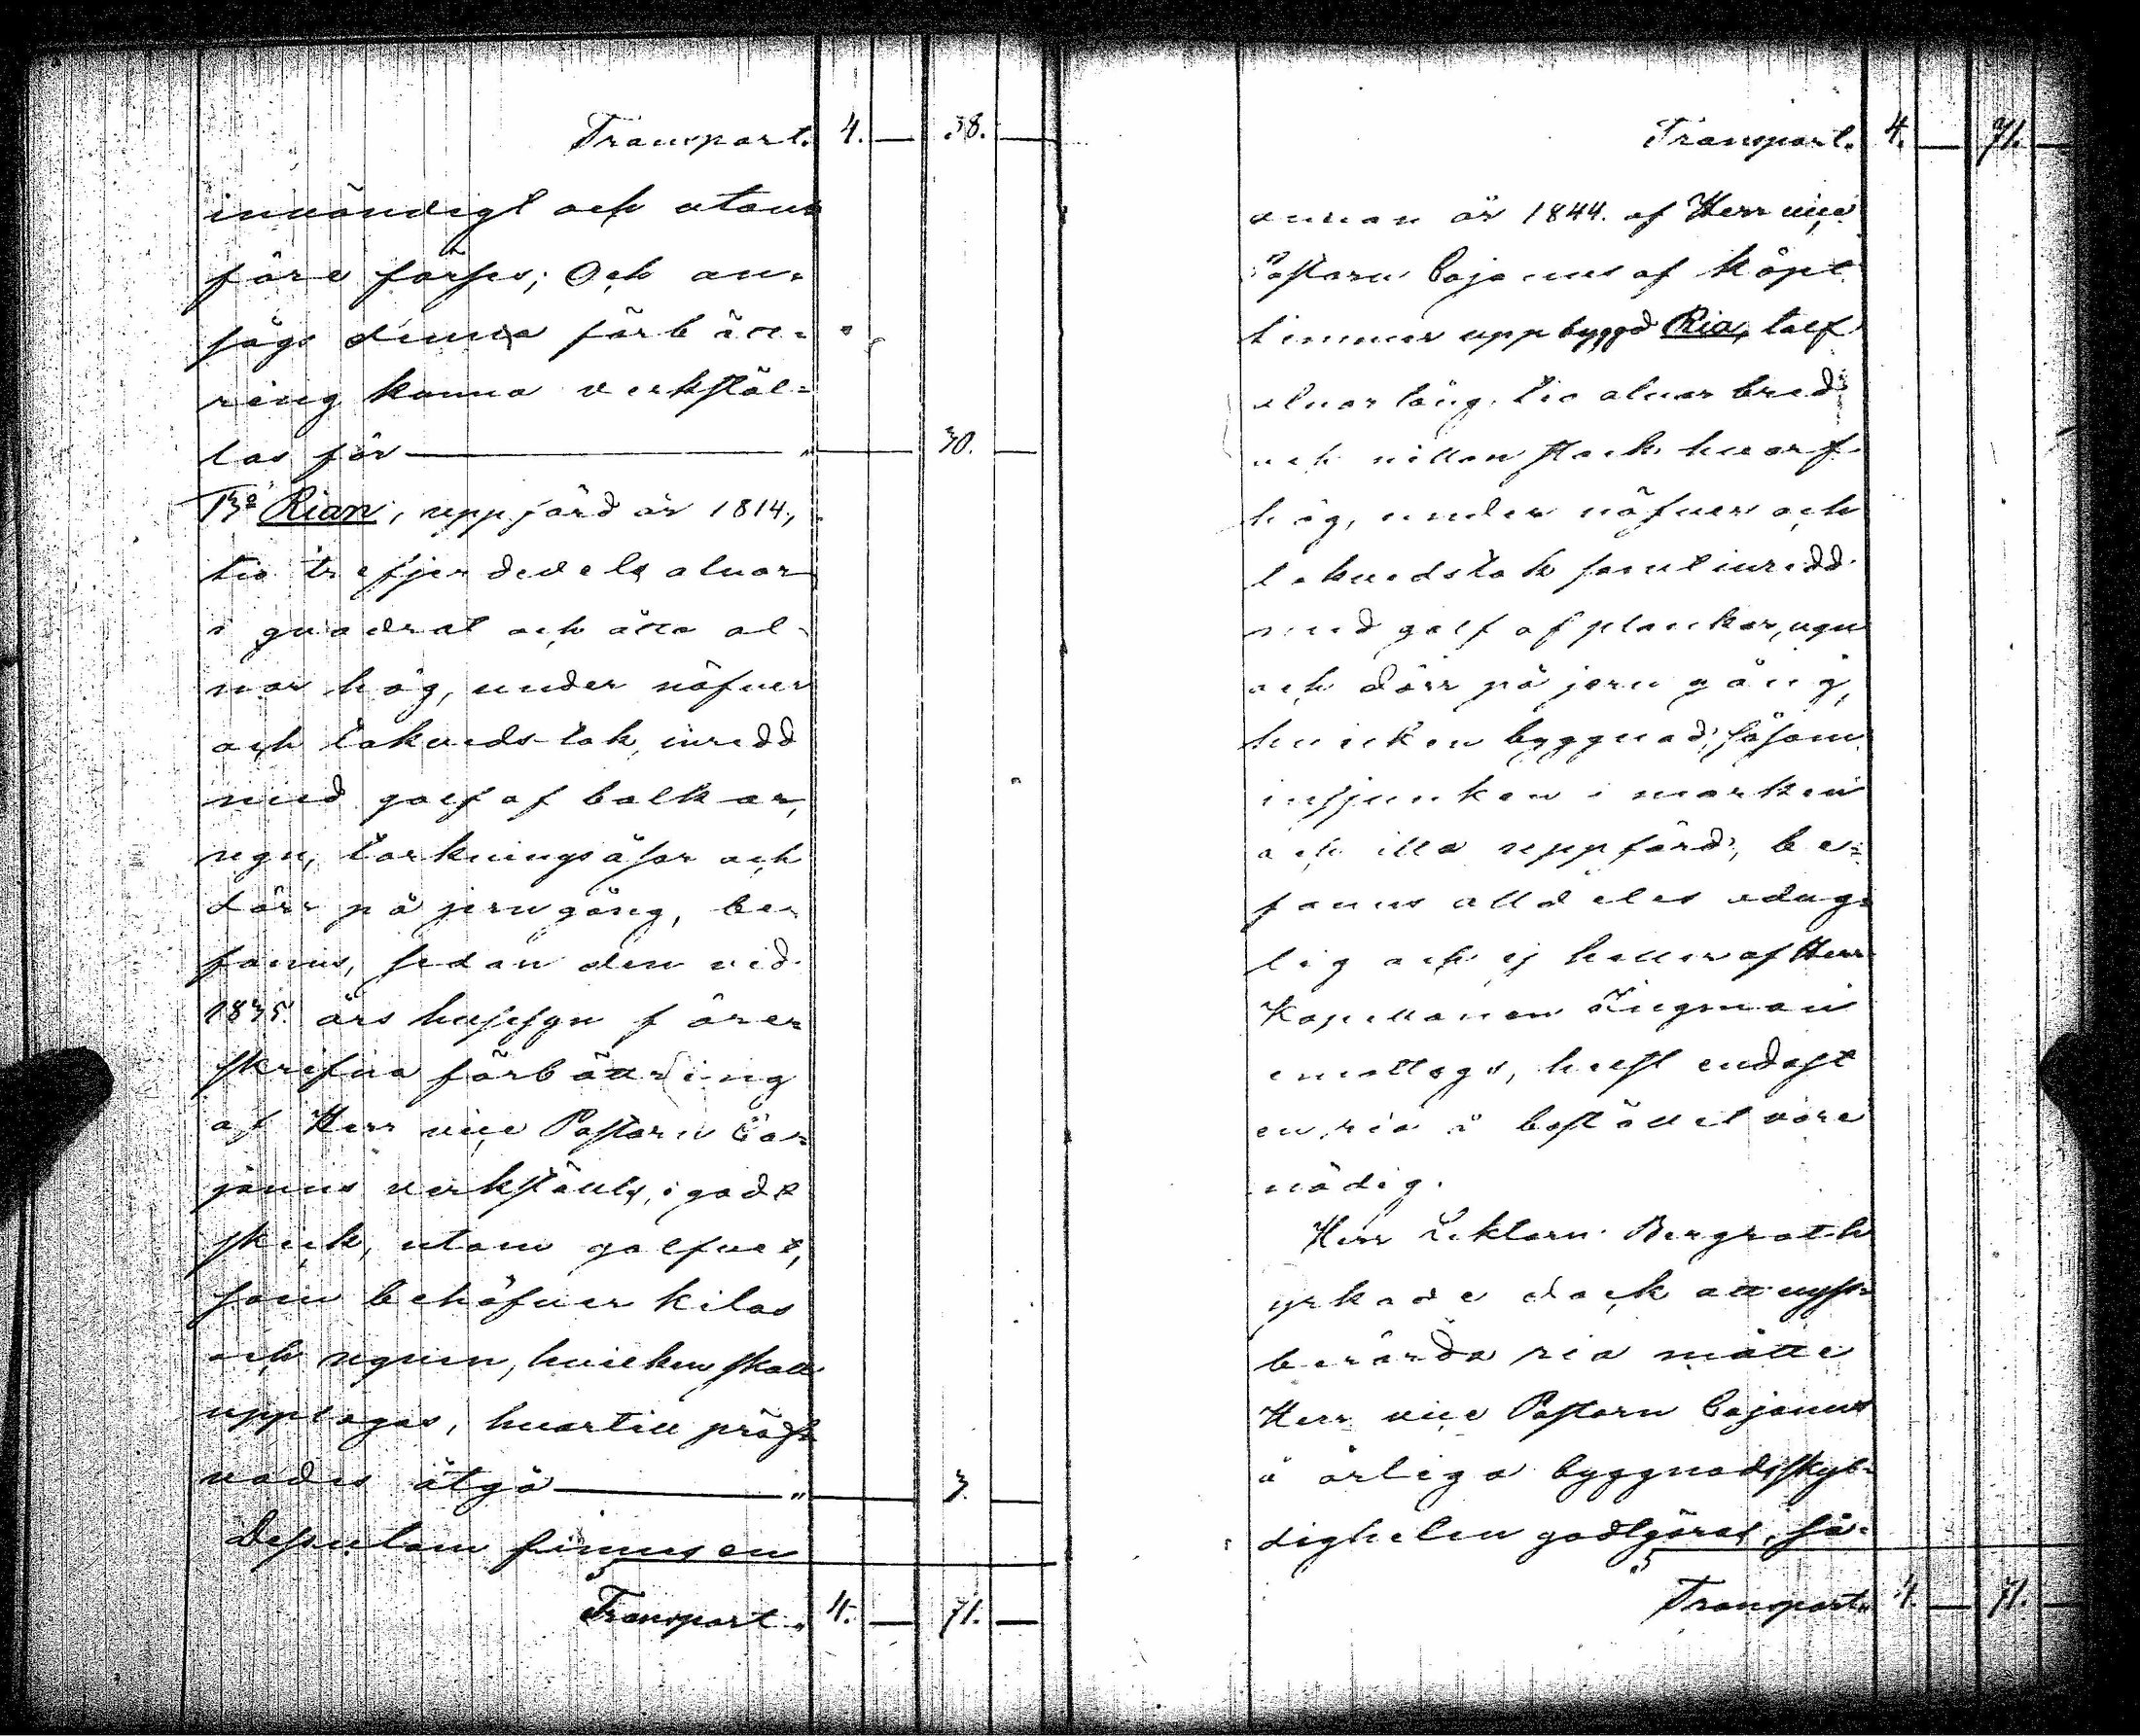 Transport. 4. — 38. —
invändigt och utan-
före förses; Och an-
sågs denna förbätt-
ring kunna verkstäl-
las för — " — 30. —
13º Rian, uppförd år 1814,
tio trefjerdedels alnar
i quadrat och åtta al-
nar hög, under näfver
och takvedstak, inredd
med golf af balkar,
ugn, torkningsåsar och
dörr på jerngång, be-
fanns, sedan den vid
1835. års hussyn före-
skrifna förbättring
af Herr vice Pastorn Ca-
janus verkställts, i godt
skick, utom golfvet,
som behöfver kilas
och ugnen, hvilken skall
upplagas, hvartill pröf-
vades åtgå — " — 3. —
Dessutom finnes en
Transport. 4. — 71. —
Transport. 4. — 71. —
annan år 1844. af Herr vice
Pastorn Cajanus af köpt
timmer uppbyggd Ria, tolf
alnar lång, tio alnar bred
och nitton stock hvarf
hög, under näfver och
takvedstak samt inredd
med golf af plankor, ugn
och dörr på jern gång,
hvilken byggnad, såsom
insjunken i marken
och illa uppförd, be-
fanns alldeles odug-
lig och ej heller af Herr
Kapellanen Ingman
emottogs, helst endast
en ria å bostället vore
nödig.
Herr Lektorn Bergroth
yrkade dock att nyss-
berörda ria måtte
Herr vice Pastorn Cajanus
å årliga byggnadsskyl-
digheten godtgöras, så-
Transport. 4. — 71. —